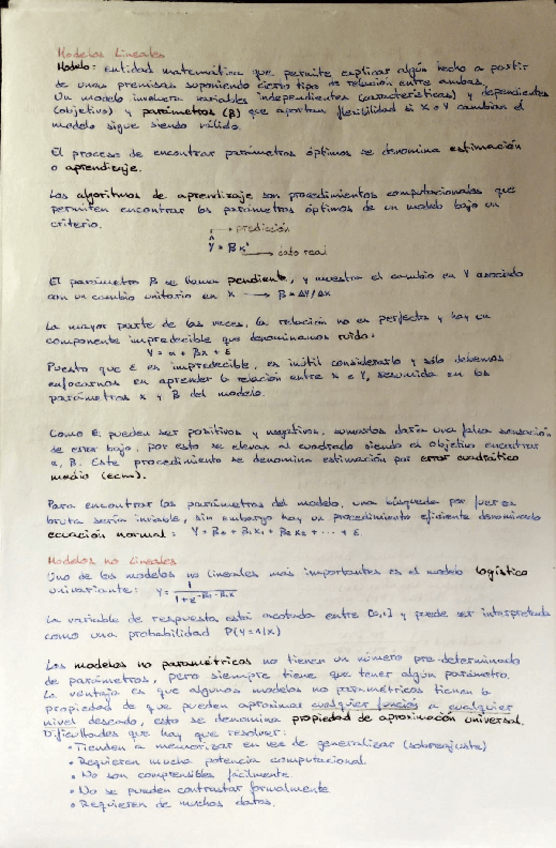 Modelos Lineales
Modelo: entidad matemática que permite explicar algún hecho a partir
de unas premisas suponiendo cierto tipo de relación entre ambas.
Un modelo involucra variables independientes (características) y dependientes
(objetivo) y parámetros (β) que aportan flexibilidad si X o Y cambian el
modelo sigue siendo válido.
El proceso de encontrar parámetros óptimos se denomina estimación
o aprendizaje.
Los algoritmos de aprendizaje son procedimientos computacionales que
permiten encontrar los parámetros óptimos de un modelo bajo un
criterio.
→ predicción
Ŷ = βx → dato real
El parámetro β se llama pendiente, y muestra el cambio en Y asociado
con un cambio unitario en X → β = ΔY/ΔX
La mayor parte de las veces, la relación no es perfecta y hay un
componente impredecible que denominamos ruido:
Y = α + βx + ε
Puesto que ε es impredecible, es inútil considerarlo y sólo debemos
enfocarnos en aprender la relación entre X e Y, resumida en los
parámetros α y β del modelo.
Como εi pueden ser positivos y negativos, sumarlos daría una falsa sensación
de error bajo, por esto se elevan al cuadrado siendo el objetivo encontrar
α, β. Este procedimiento se denomina estimación por error cuadrático
medio (ecm).
Para encontrar los parámetros del modelo, una búsqueda por fuerza
bruta sería inviable, sin embargo hay un procedimiento eficiente denominado
ecuación normal: Y = β0 + β1x1 + β2x2 + ... + ε.
Modelos no Lineales
Uno de los modelos no lineales más importantes es el modelo logístico
univariante: Y = 1 / 1+e^-β0-β1x
La variable de respuesta está acotada entre [0,1] y puede ser interpretada
como una probabilidad P(Y=1/X)
Los modelos no paramétricos no tienen un número pre-determinado
de parámetros, pero siempre tiene que tener algún parámetro.
La ventaja es que algunos modelos no paramétricos tienen la
propiedad de que pueden aproximar cualquier función a cualquier
nivel deseado, esto se denomina propiedad de aproximación universal.
Dificultades que hay que resolver:
• Tienden a memorizar en vez de generalizar (sobreajuste)
• Requieren mucha potencia computacional.
• No son comprensibles fácilmente
• No se pueden contrastar formalmente
• Requieren de muchos datos.